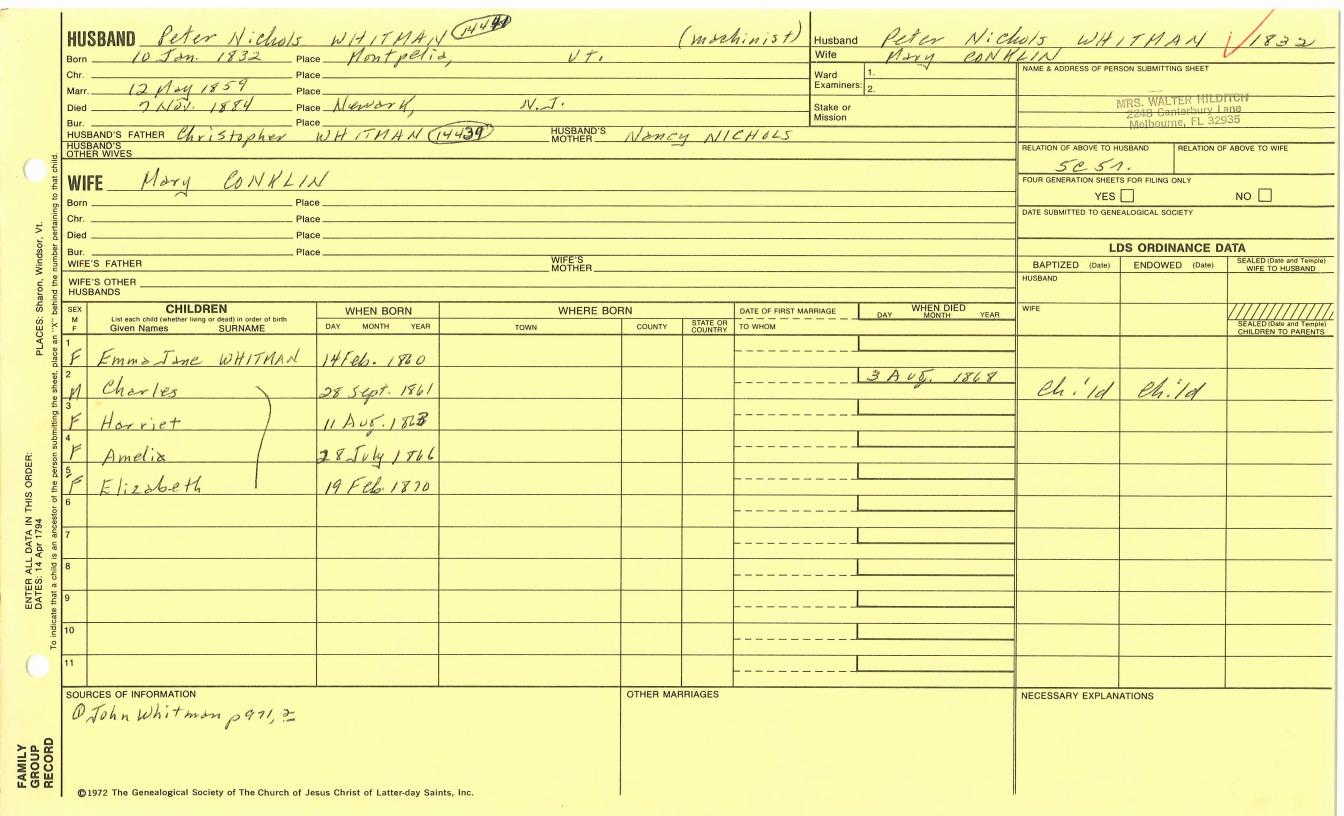 HUSBAND Peter Nichols WHITMAN (machinist)
Born 10 Jan. 1832 Place Montpelia, VT.
Chr. Place
Marr. 12 May 1859 Place
Died 7 Nov. 1884 Place Newark, N.J.
Bur. Place
HUSBAND'S FATHER Christopher WHITMAN 14439 HUSBAND'S MOTHER Nancy NICHOLS
HUSBAND'S OTHER WIVES
Husband Peter Nichols WHITMAN 1832
Wife Mary CONKLIN
Ward Examiners: 1. 2.
Stake or Mission
NAME & ADDRESS OF PERSON SUBMITTING SHEET
MRS. WALTER HILDITCH
2248 Canterbury Lane
Melbourne, FL 32935
RELATION OF ABOVE TO HUSBAND RELATION OF ABOVE TO WIFE
5C 5r.
FOUR GENERATION SHEETS FOR FILING ONLY
YES NO
DATE SUBMITTED TO GENEALOGICAL SOCIETY
WIFE Mary CONKLIN
Born Place
Chr. Place
Died Place
Bur. Place
WIFE'S FATHER WIFE'S MOTHER
WIFE'S OTHER HUSBANDS
LDS ORDINANCE DATA
BAPTIZED (Date) ENDOWED (Date) SEALED (Date and Temple) WIFE TO HUSBAND
HUSBAND
WIFE
SEALED (Date and Temple) CHILDREN TO PARENTS
SEX M F
CHILDREN
List each child (whether living or dead) in order of birth
Given Names SURNAME
WHEN BORN
DAY MONTH YEAR
WHERE BORN
TOWN COUNTY STATE OR COUNTRY
DATE OF FIRST MARRIAGE
TO WHOM
WHEN DIED
DAY MONTH YEAR
1 F Emma Jane WHITMAN 14 Feb. 1860
2 M Charles 28 Sept. 1861 3 Aug. 1868 Child Child
3 F Harriet 11 Aug. 1863
4 F Amelia 28 July 1866
5 F Elizabeth 19 Feb. 1870
6
7
8
9
10
11
SOURCES OF INFORMATION
① John Whitman p 971, 2
OTHER MARRIAGES
NECESSARY EXPLANATIONS
©1972 The Genealogical Society of The Church of Jesus Christ of Latter-day Saints, Inc.
ENTER ALL DATA IN THIS ORDER:
DATES: 14 Apr 1794 PLACES: Sharon, Windsor, Vt.
To indicate that a child is an ancestor of the person submitting the sheet, place an "X" behind the number pertaining to that child.
FAMILY GROUP RECORD